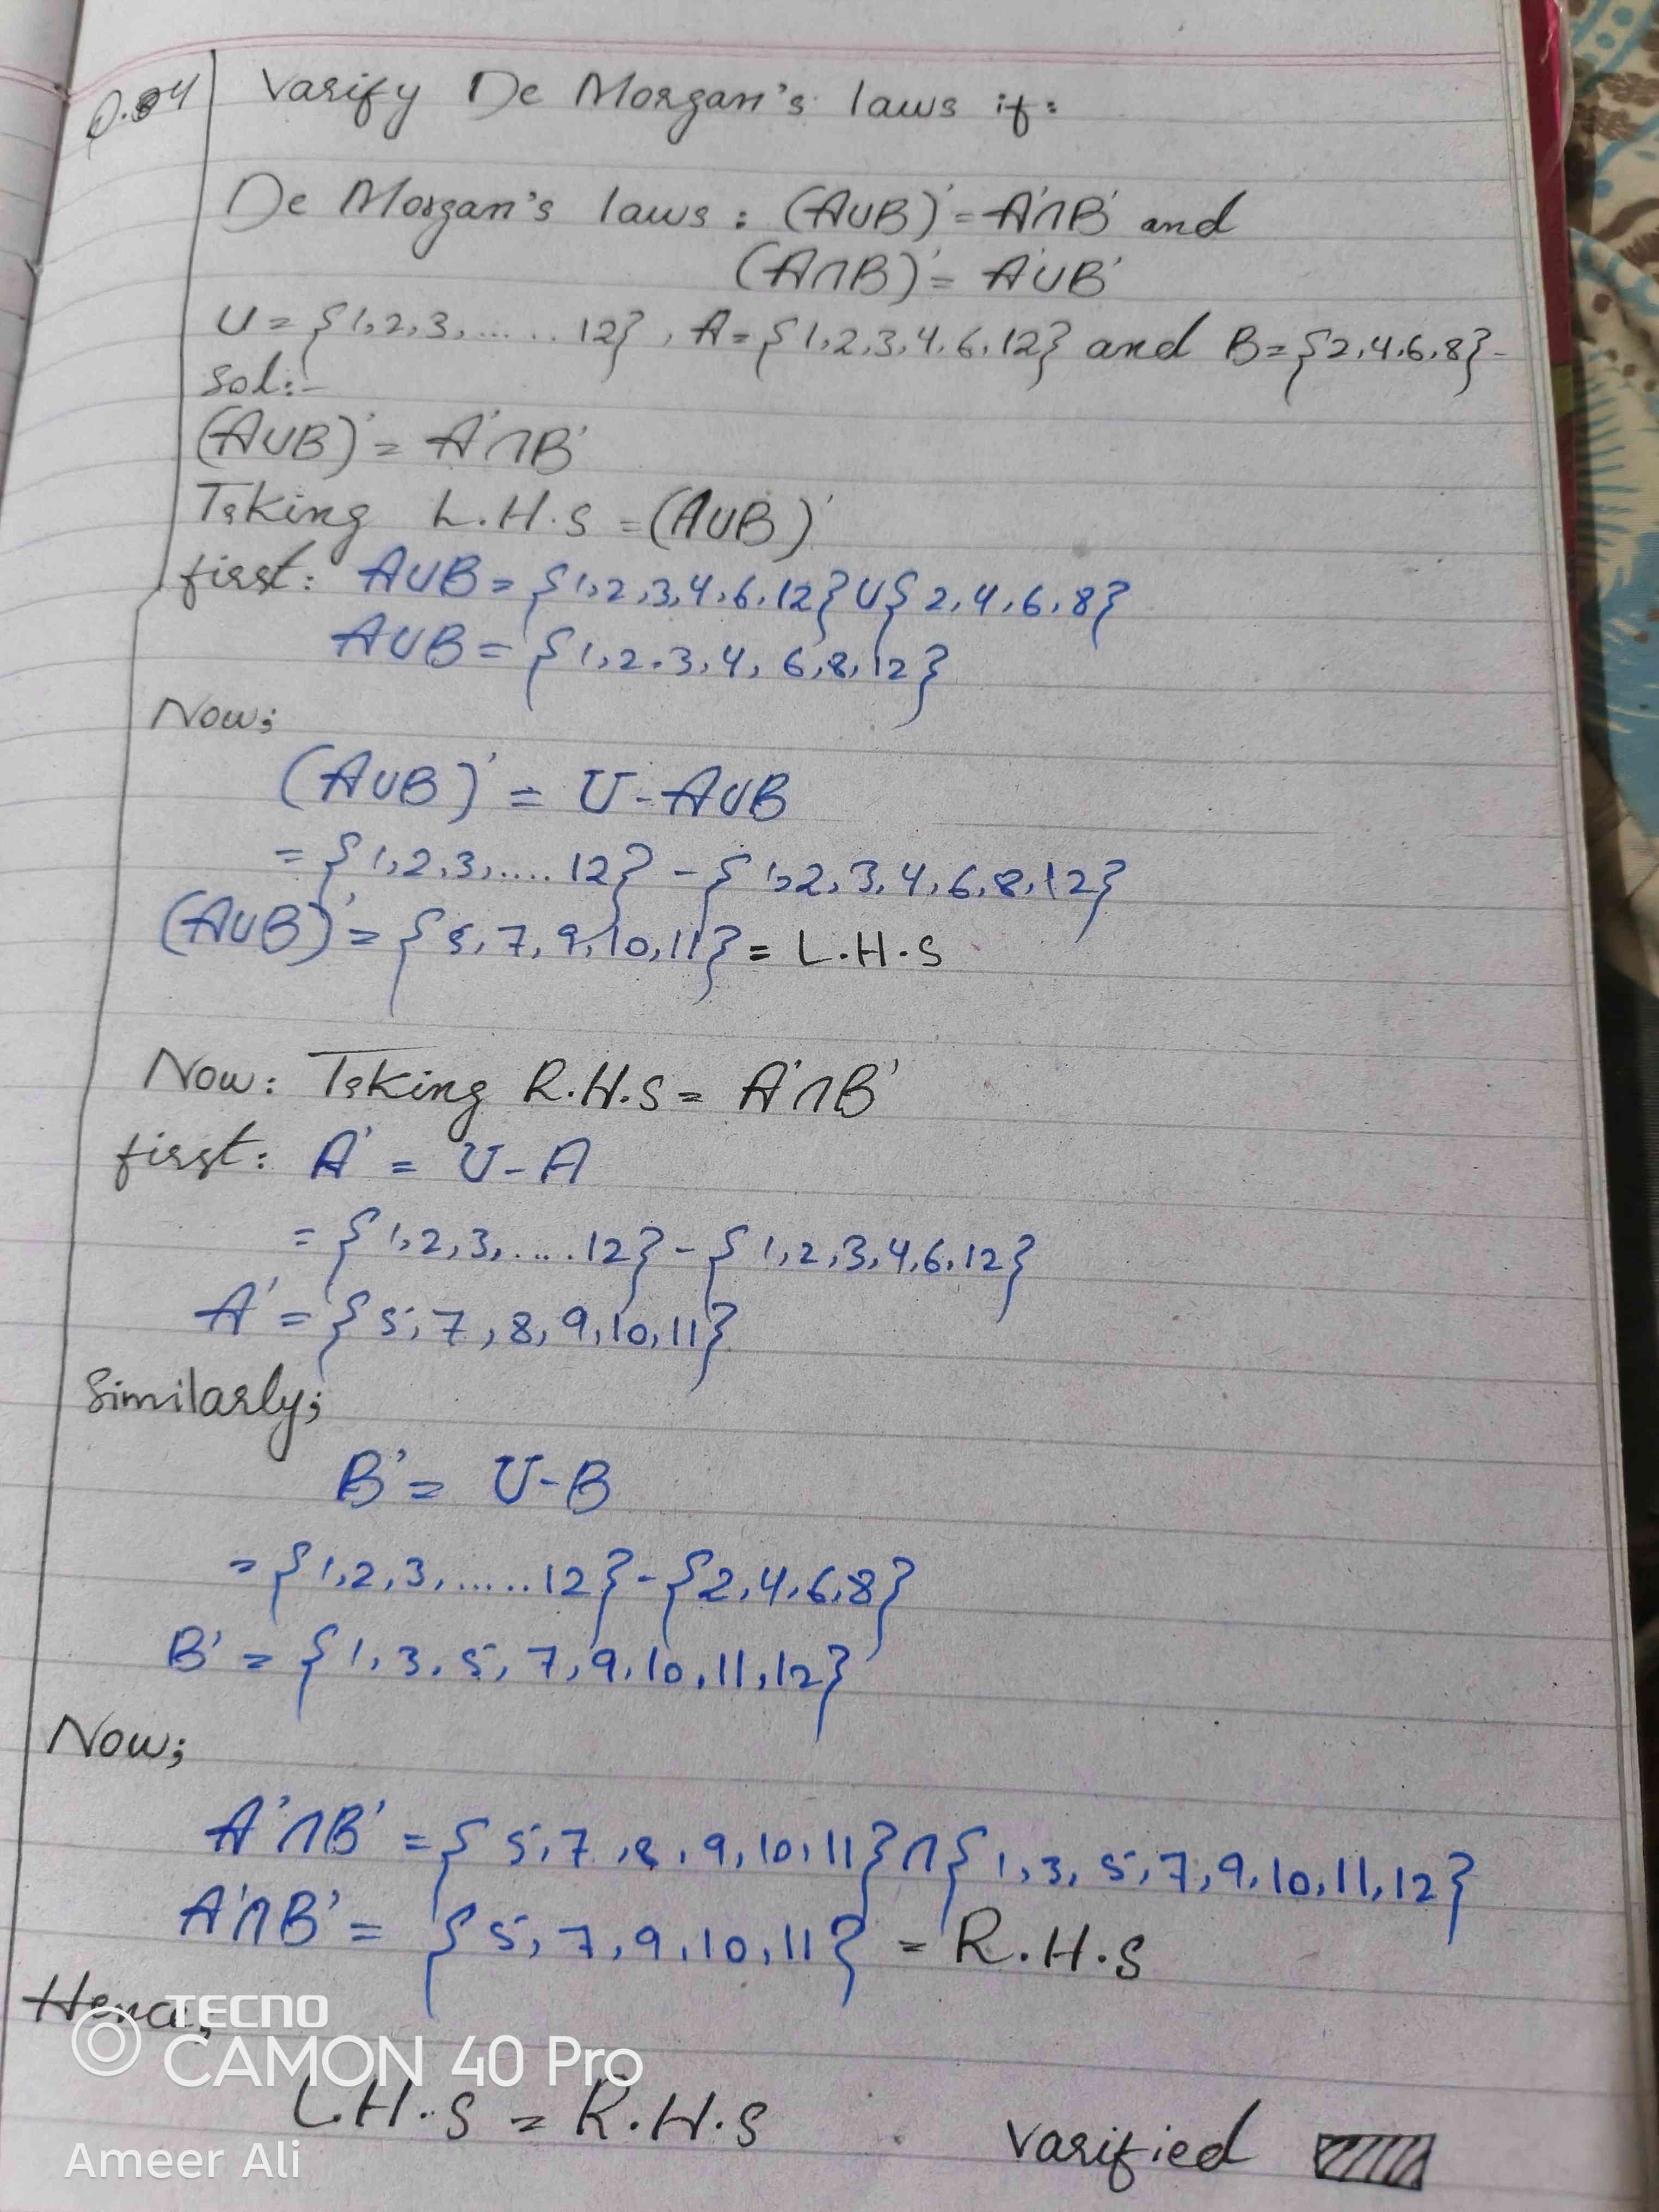 Q.04 Varify De Morgan's laws if:
De Morgan's laws: (A∪B)' = A'∩B' and
(A∩B)' = A'∪B'
U = {1,2,3,......12}, A = {1,2,3,4,6,12} and B = {2,4,6,8}-
Sol:-
(A∪B)' = A'∩B'
Taking L.H.S = (A∪B)'
first: A∪B = {1,2,3,4,6,12} ∪ {2,4,6,8}
A∪B = {1,2,3,4, 6,8,12}
Now;
(A∪B)' = U - A∪B
= {1,2,3,....12} - {1,2,3,4,6,8,12}
(A∪B)' = {5,7,9,10,11} = L.H.S
Now: Taking R.H.S = A'∩B'
first: A' = U - A
= {1,2,3,....12} - {1,2,3,4,6,12}
A' = {5,7,8,9,10,11}
Similarly;
B' = U - B
= {1,2,3,.....12} - {2,4,6,8}
B' = {1,3,5,7,9,10,11,12}
Now;
A'∩B' = {5,7,8,9,10,11} ∩ {1,3,5,7,9,10,11,12}
A'∩B' = {5,7,9,10,11} = R.H.S
Hence;
TECNO
CAMON 40 Pro
L.H.S = R.H.S varified
Ameer Ali